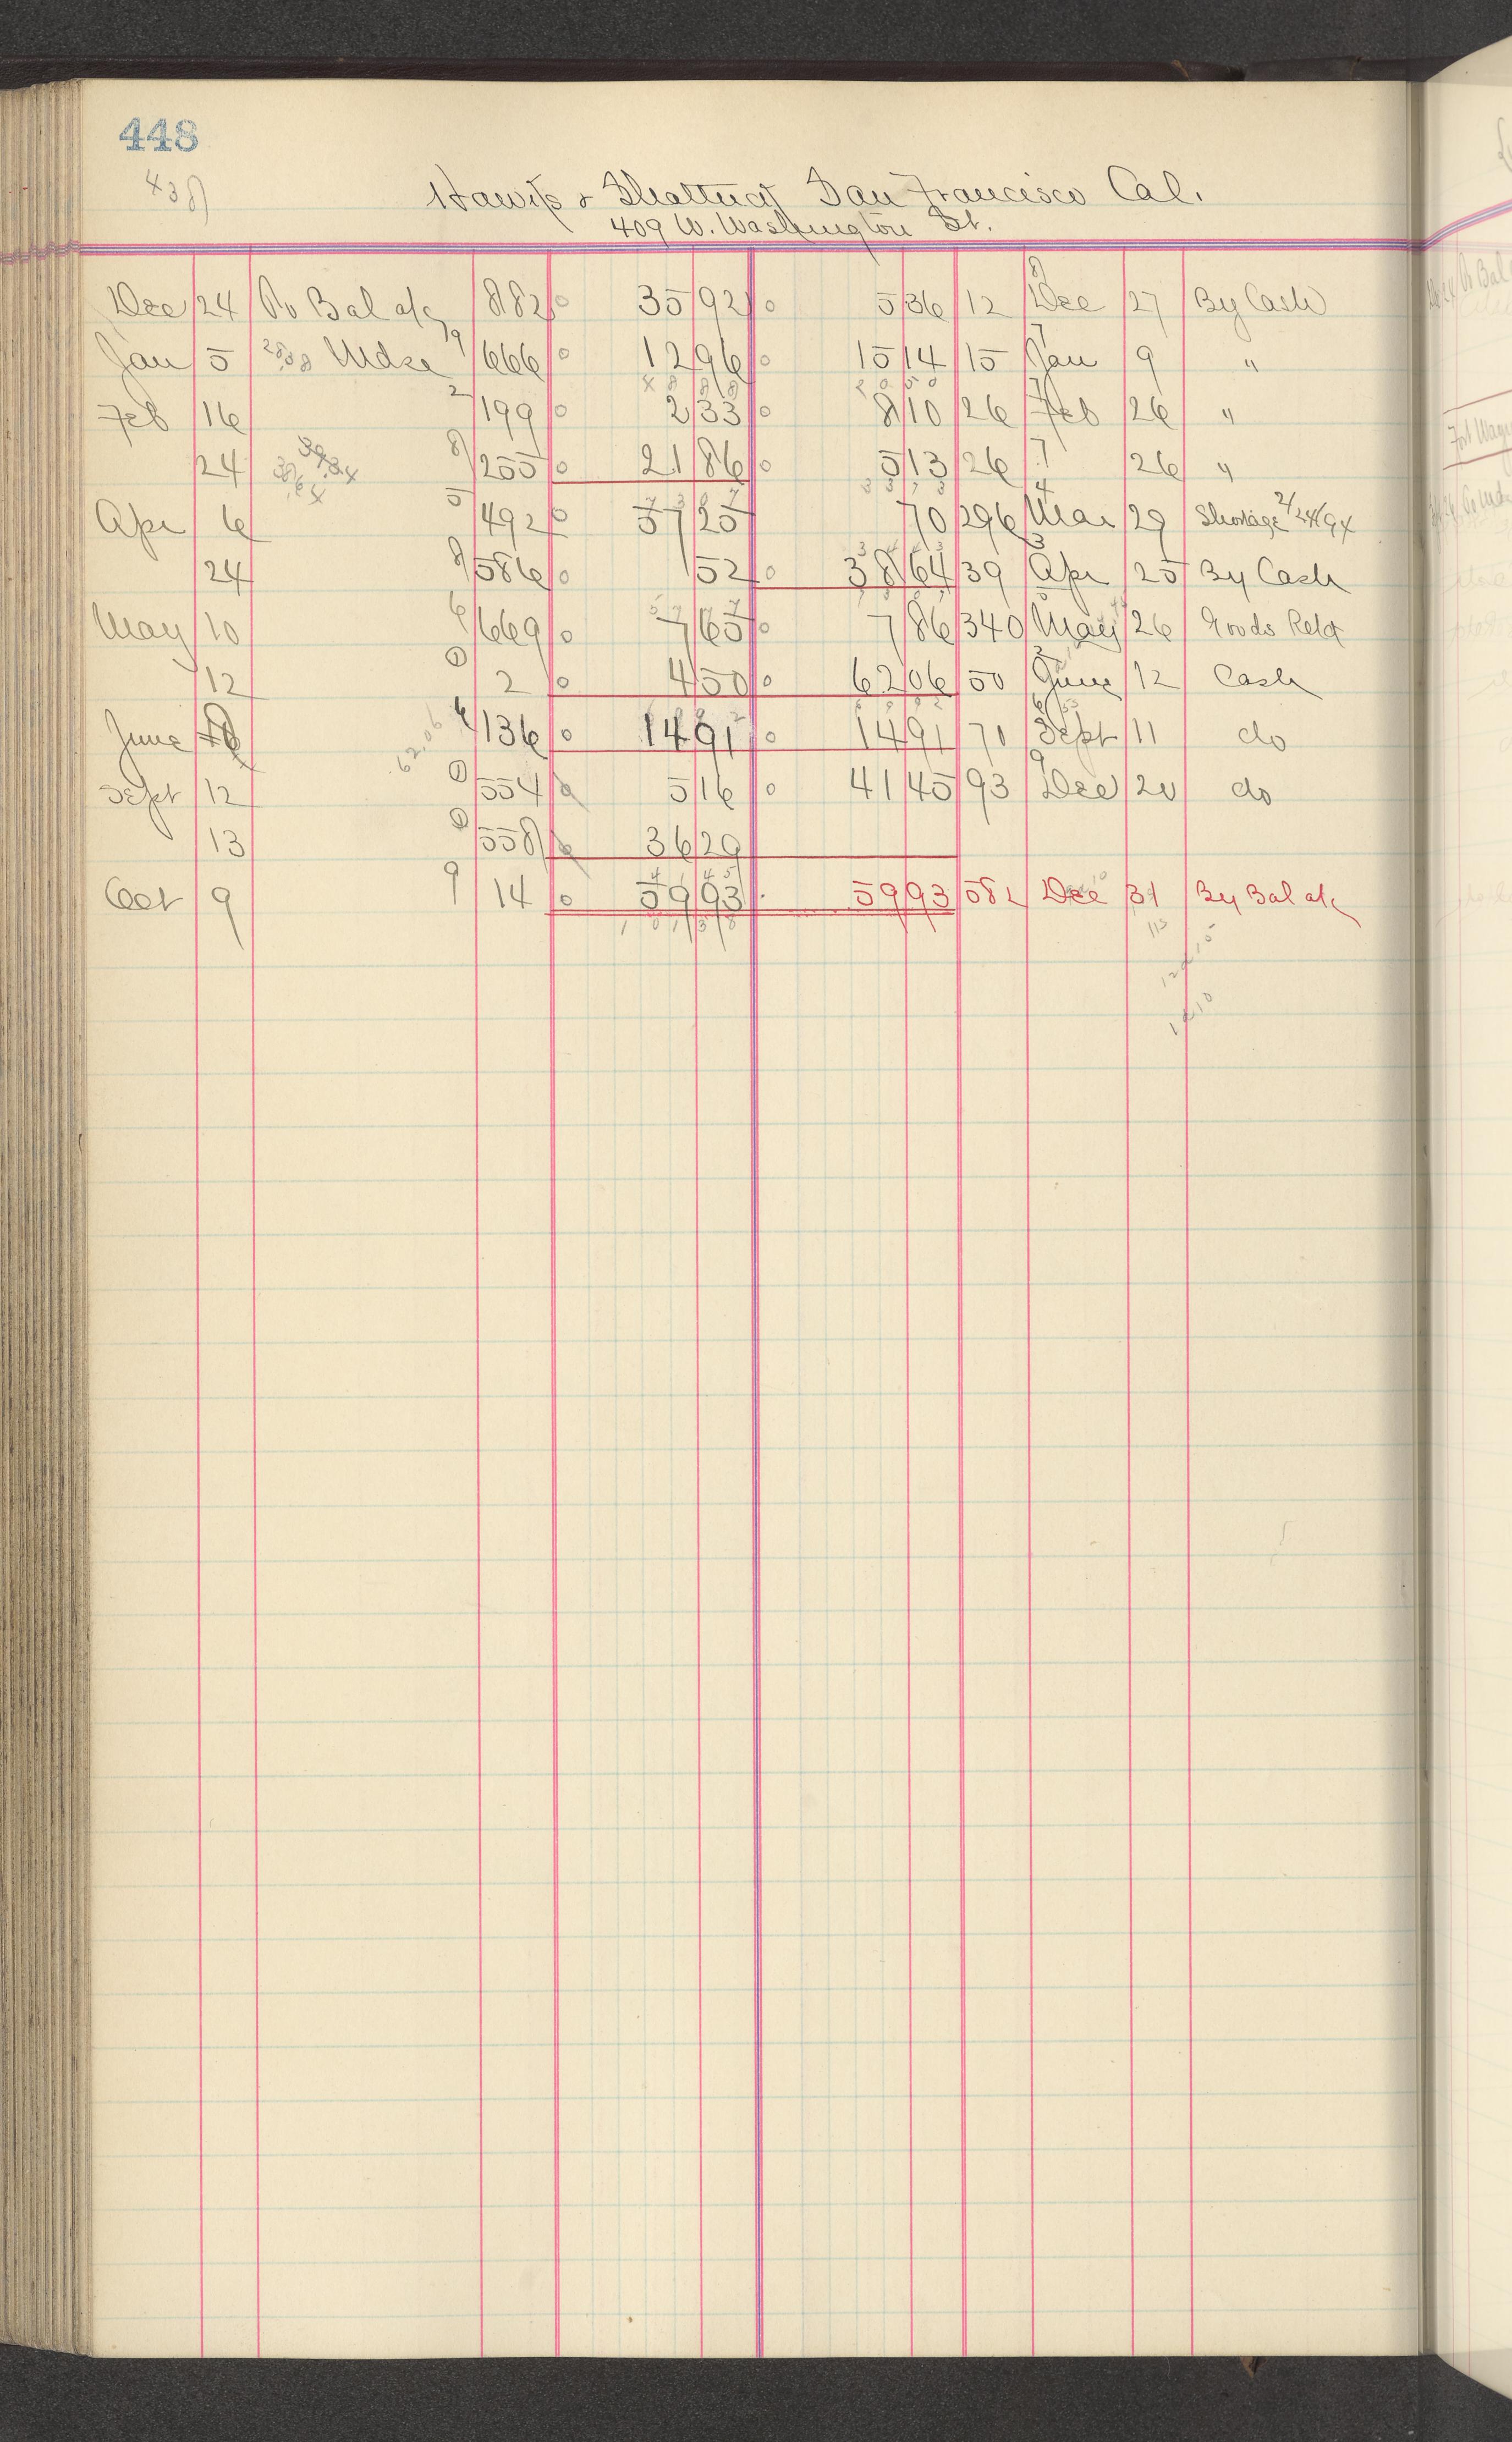 448
438
Hawks & Shattuck San Francisco Cal.
409 W. Washington St.
Dec 24 To Bal a/c 882 0 35 92 0 5 36 12 8 Dec 27 By Cash
Jan 5 Mdse 19 666 0 12 96 0 15 14 15 7 Jan 9 "
Feb 16 2 199 0 2 33 0 8 10 26 7 Feb 26 "
24 39.34 8 255 0 21 86 0 5 13 26 7 26 "
Apr 6 5 492 0 57 25 70 296 4 Mar 29 Shortage 2/24/94
24 8 586 0 1 52 0 38 64 39 3 Apr 25 By Cash
May 10 6 669 0 7 65 0 7 86 340 May 26 Goods Retd
12 0 2 0 4 50 0 62 06 50 June 12 Cash
June 62.06 4 136 0 14 91 0 14 91 71 Sept 11 do
Sept 12 0 554 0 5 16 0 41 45 93 9 Dec 20 do
13 0 558 36 29
Oct 9 9 14 0 59 93 59 93 582 Dec 31 By Bal a/c